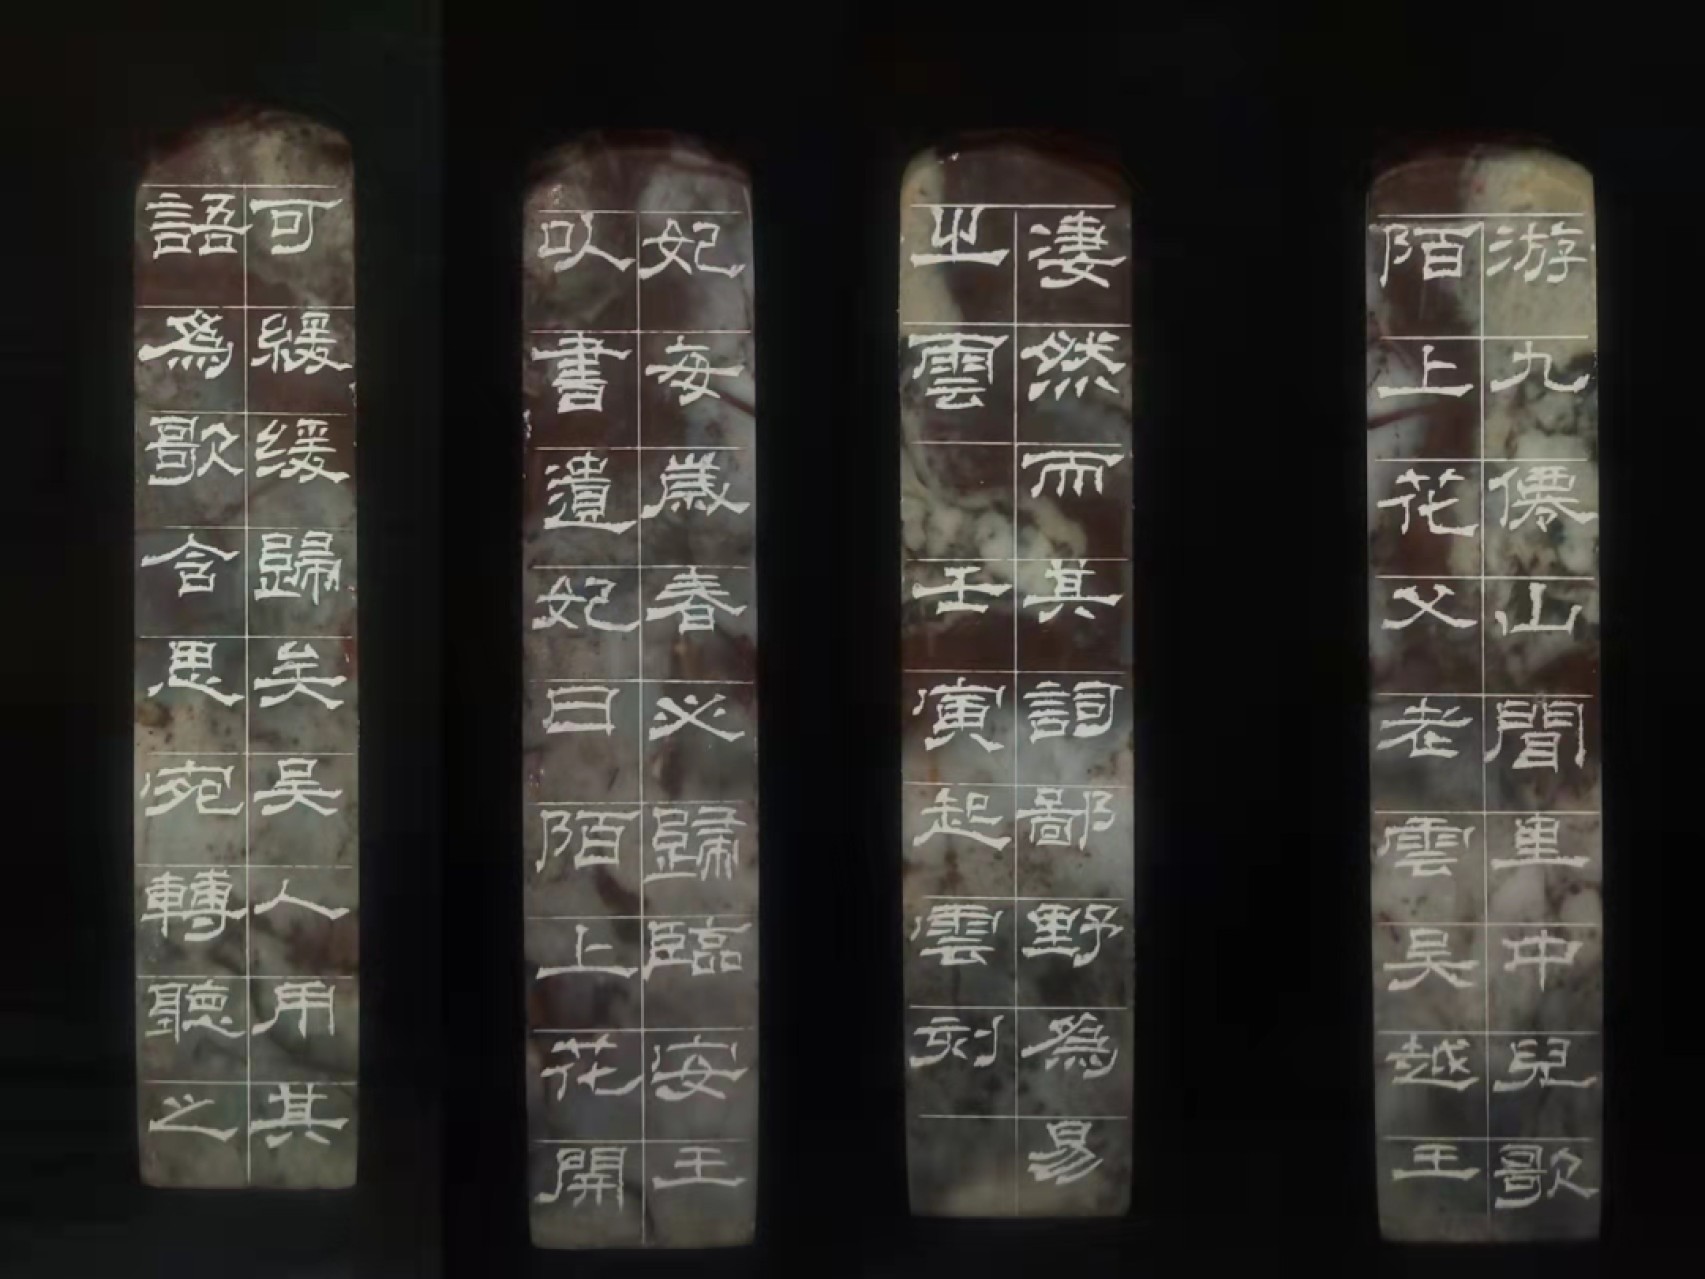 游九僊山聞里中兒歌
陌上花父老雲吳越王
妃每歲春必歸臨安王
以書遺妃曰陌上花開
可緩緩歸矣吳人用其
語爲歌含思宛轉聽之
淒然而其詞鄙野爲易
之雲 壬寅起雲刻